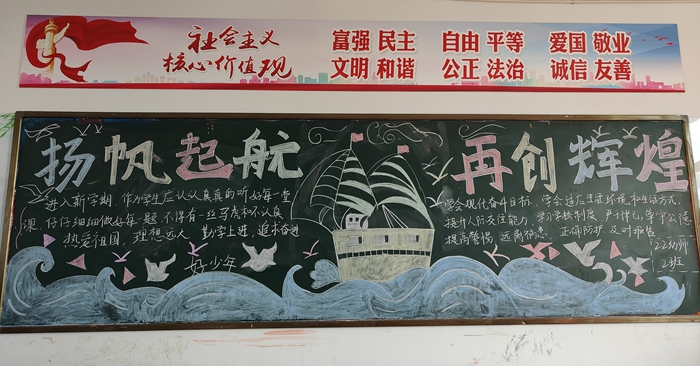 社会主义
核心价值观
富强 民主 自由 平等 爱国 敬业
文明 和谐 公正 法治 诚信 友善
扬帆起航 再创辉煌
进入新学期，作为学生应认认真真的听好每一堂
课，仔仔细细做好每一题，不得有一丝马虎和不认真
热爱祖国，理想远大 勤学上进，追求奋进
好少年
学会规代奋斗目标，学会适应生活环境和生活方式，
提升人际交往能力
学习学校制度，严于律己，尊守公德
提高警惕 远离隐患 正确防护 及时报告
22幼师
2班